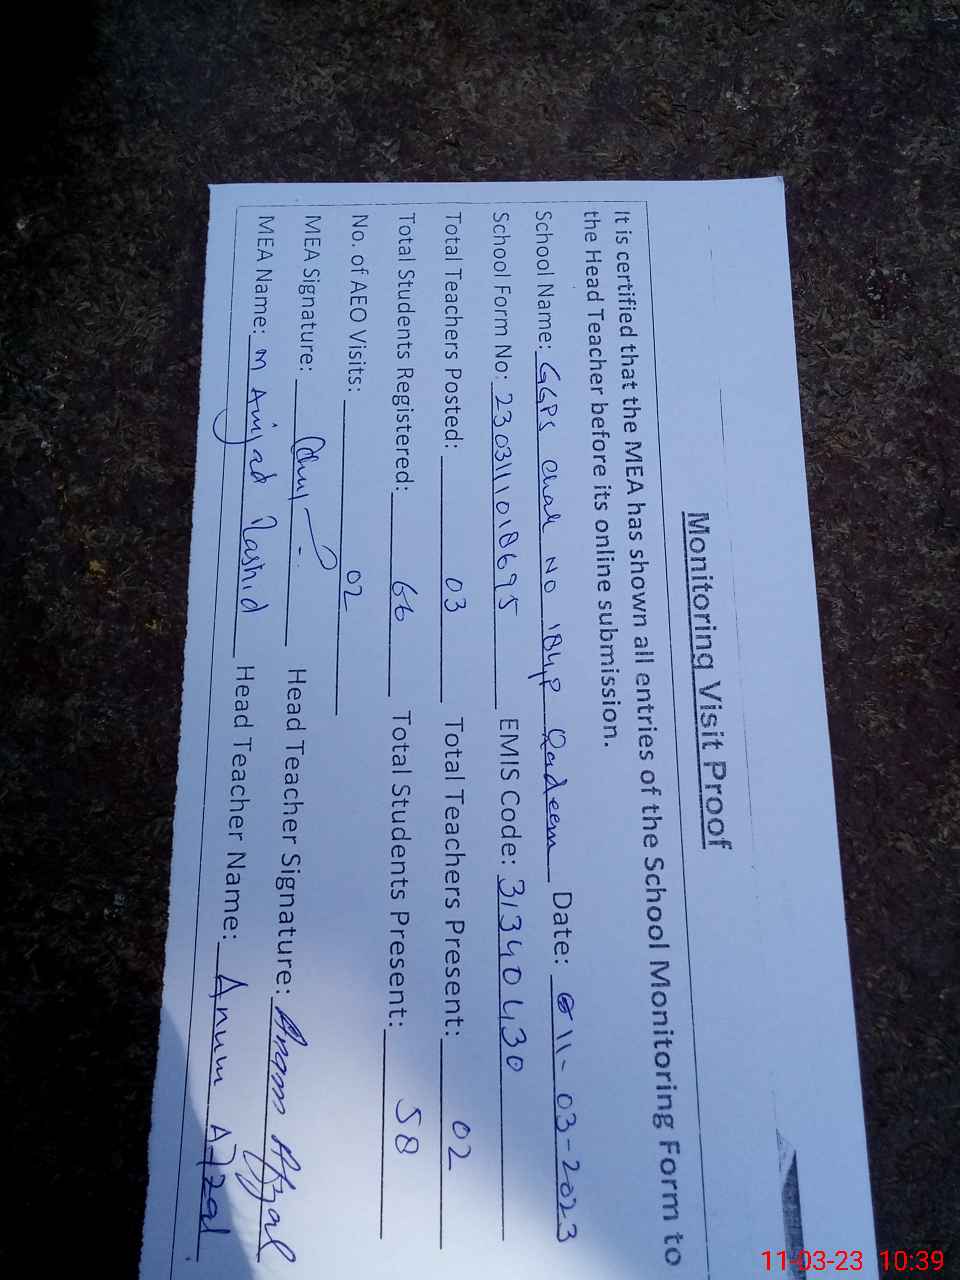 Monitoring Visit Proof
It is certified that the MEA has shown all entries of the School Monitoring Form to
the Head Teacher before its online submission.
School Name: GGPS Chak No 184P Qadeem Date: 11-03-2023
School Form No: 230311018695 EMIS Code: 31340430
Total Teachers Posted: 03 Total Teachers Present: 02
Total Students Registered: 66 Total Students Present: 58
No. of AEO Visits: 02
MEA Signature: Head Teacher Signature: Anam Afzal
MEA Name: M Amjad Rashid Head Teacher Name: Anum Afzal
11-03-23 10:39